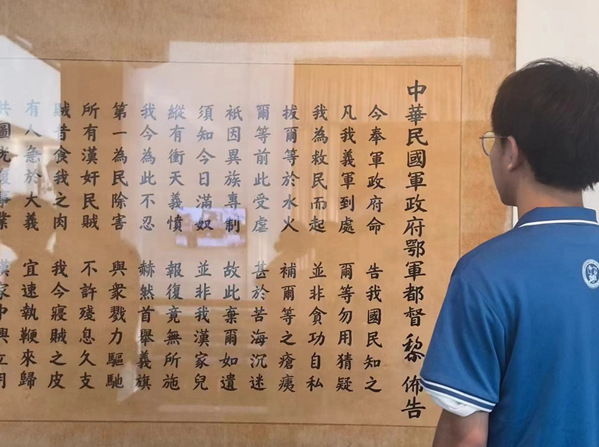 中華民國軍政府鄂軍都督黎佈告
今奉軍政府命 告我國民知之
凡我義軍到處 爾等勿用猜疑
我為救民而起 並非貪功自私
拔爾等於水火 補爾等之瘡痍
爾等前此受虐 甚於苦海沉迷
祇因異族專制 故此棄爾如遺
須知今日滿奴 並非我漢家兒
縱有衝天義憤 報復竟無所施
我今為此不忍 赫然首舉義旗
第一為民除害 與衆戮力驅馳
所有漢奸民賊 不許殘息久支
賊昔食我之肉 我今寢賊之皮
有人急於大義 宜速執鞭來歸
共圖光復事業 漢家中興立